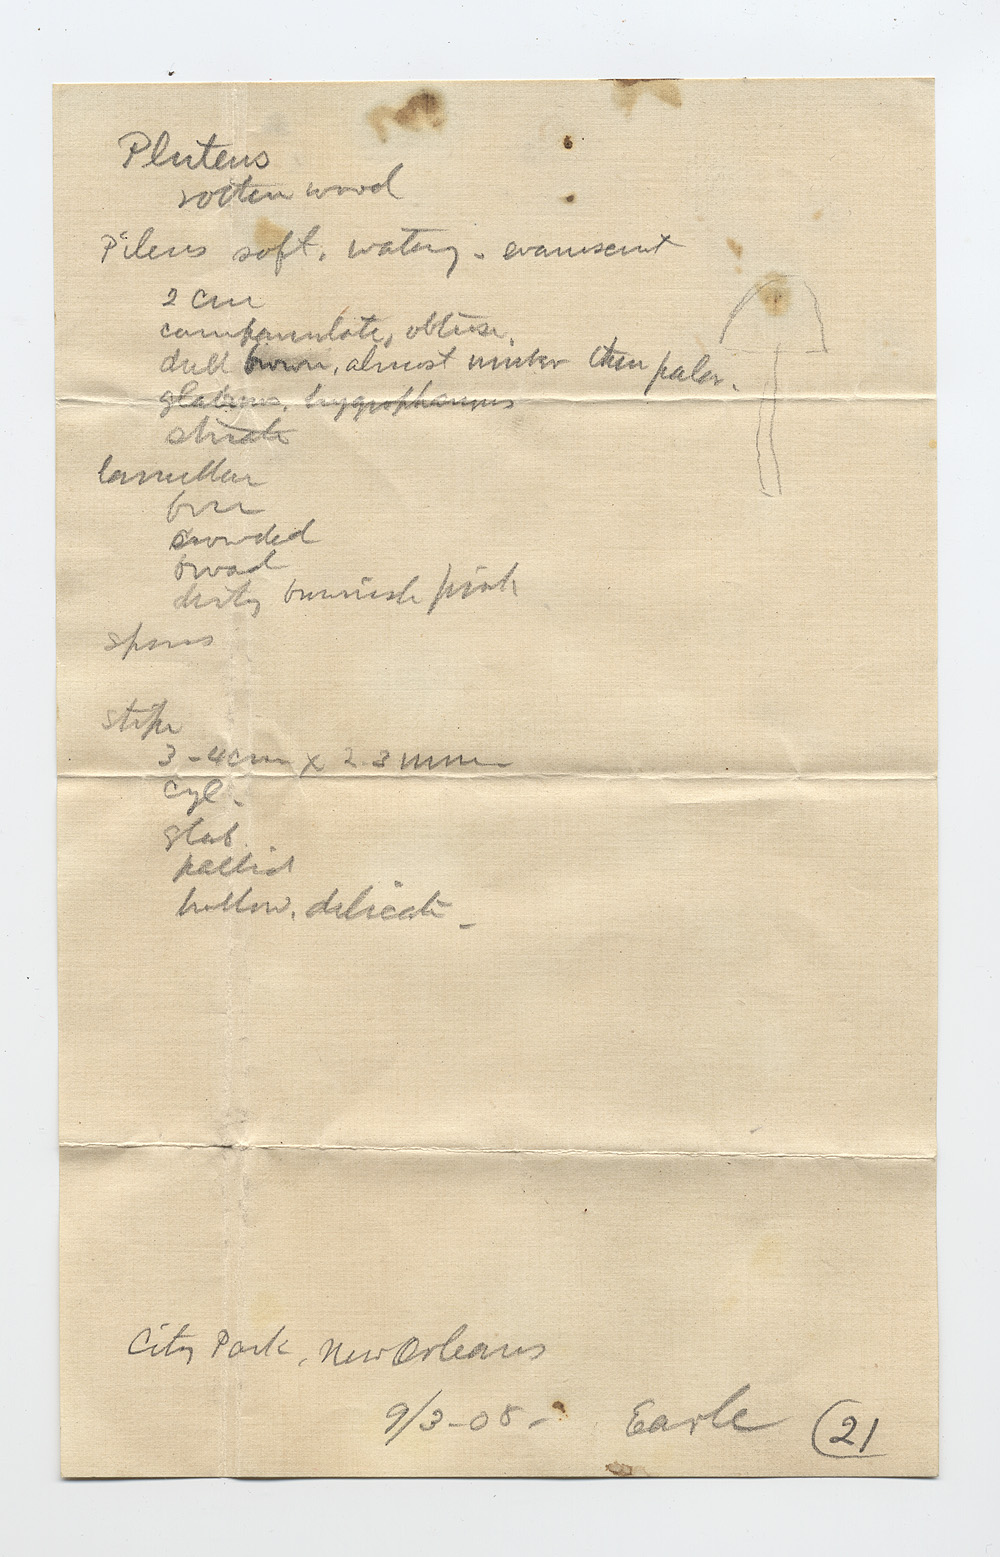 Pluteus
rotten wood
Pileus soft, watery - evanescent
2 cm
campanulate, obtuse,
dull brown, almost umber then paler.
glabrous, hygrophanous
striate
lamellae
free
crowded
broad
dirty brownish pink
spores
stipe
3-4cm x 2-3 mm
cyl.
glab.
pallid
hollow, delicate -
City Park, New Orleans
9/3-08- Earle (21